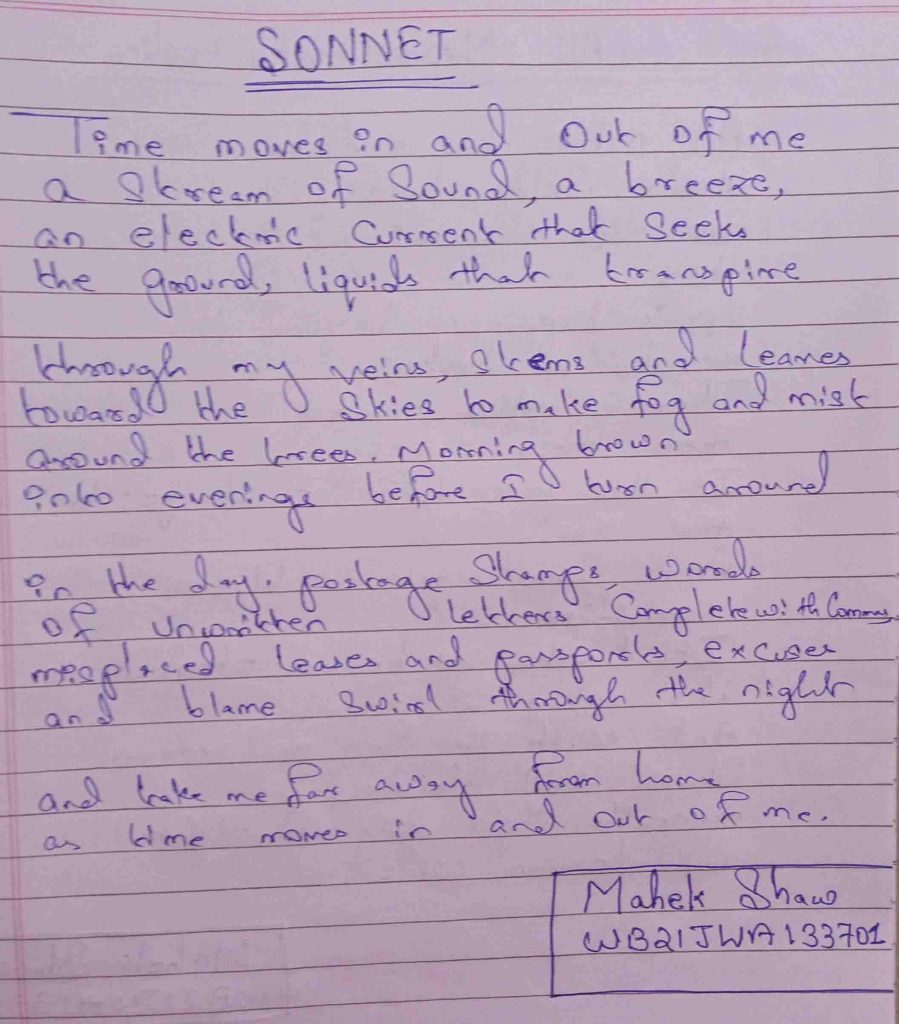 SONNET
Time moves in and Out of me
a Stream of Sound, a breeze,
an electric Current that Seeks
the ground, liquids that transpire
through my veins, Stems and leaves
toward the Skies to make fog and mist
around the trees. Morning brown
into evenings before I turn around
in the day. postage Stamps, words
of unwritten letters Complete with Commas,
misplaced leases and passports, excuses
and blame Swirl through the night
and take me far away from home
as time moves in and out of me.
Mahek Shaw
WB21JWA133701